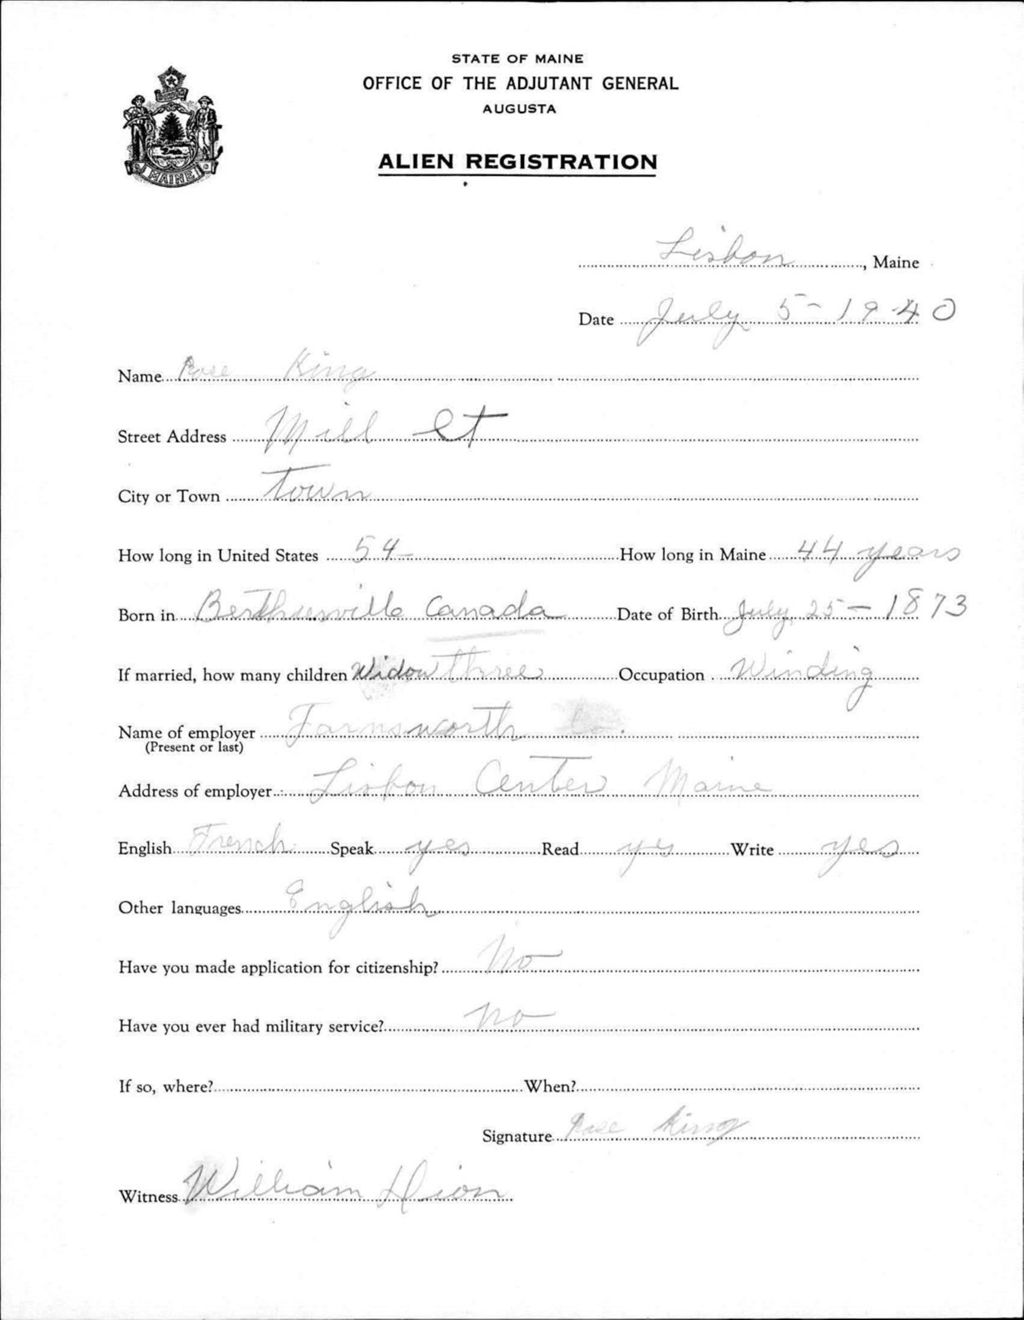 STATE OF MAINE
OFFICE OF THE ADJUTANT GENERAL
AUGUSTA
MAINE
ALIEN REGISTRATION
Lisbon, Maine
Date July 5-1940
Name Rose King
Street Address Mill St
City or Town Town
How long in United States 54 How long in Maine 44 years
Born in Berthierville Canada Date of Birth July 25-1873
If married, how many children Widow three Occupation Winding
Name of employer Farnsworth Co.
(Present or last)
Address of employer Lisbon Center Maine
English French Speak yes Read yes Write yes
Other languages English
Have you made application for citizenship? No
Have you ever had military service? no
If so, where? When?
Signature Rose King
Witness William Dion